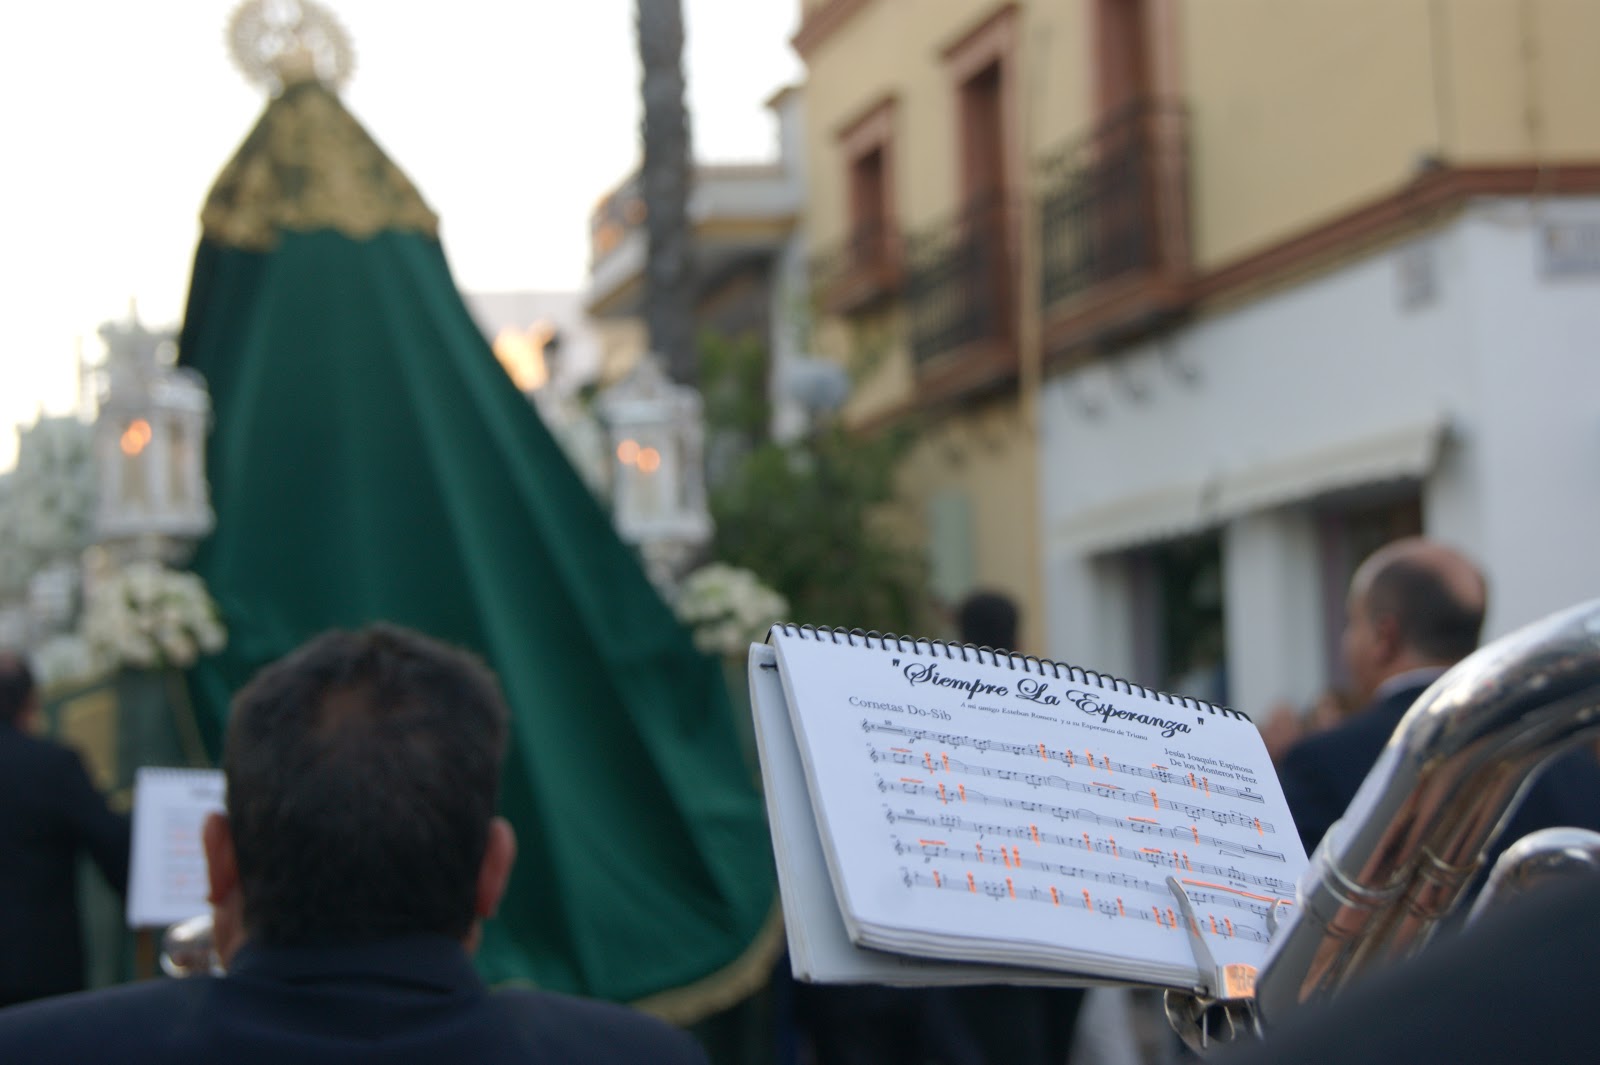 "Siempre La Esperanza"
A mi amigo Esteban Romera y a su Esperanza de Triana
Cornetas Do-Sib
Jesús Joaquín Espinosa
De los Monteros Pérez